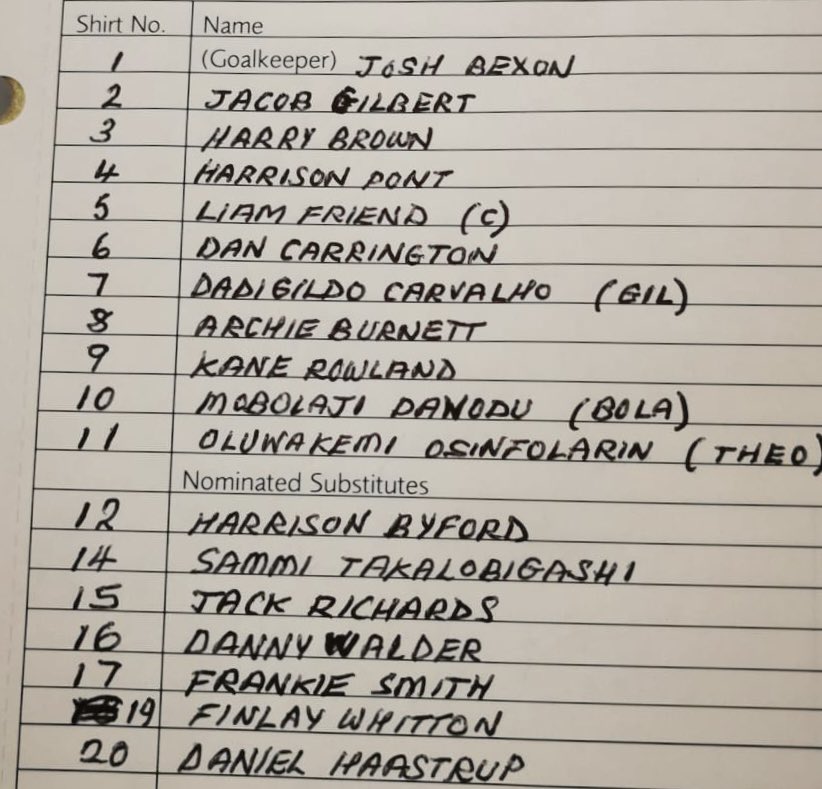 Shirt No. Name
1 (Goalkeeper) JOSH BEXON
2 JACOB GILBERT
3 HARRY BROWN
4 HARRISON PONT
5 LIAM FRIEND (C)
6 DAN CARRINGTON
7 DADIGILDO CARVALHO (GIL)
8 ARCHIE BURNETT
9 KANE ROWLAND
10 MOBOLAJI DAWODU (BOLA)
11 OLUWAKEMI OSINFOLARIN (THEO)
Nominated Substitutes
12 HARRISON BYFORD
14 SAMMI TAKALOBIGASHI
15 JACK RICHARDS
16 DANNY WALDER
17 FRANKIE SMITH
19 FINLAY WHITTON
20 DANIEL HAASTRUP